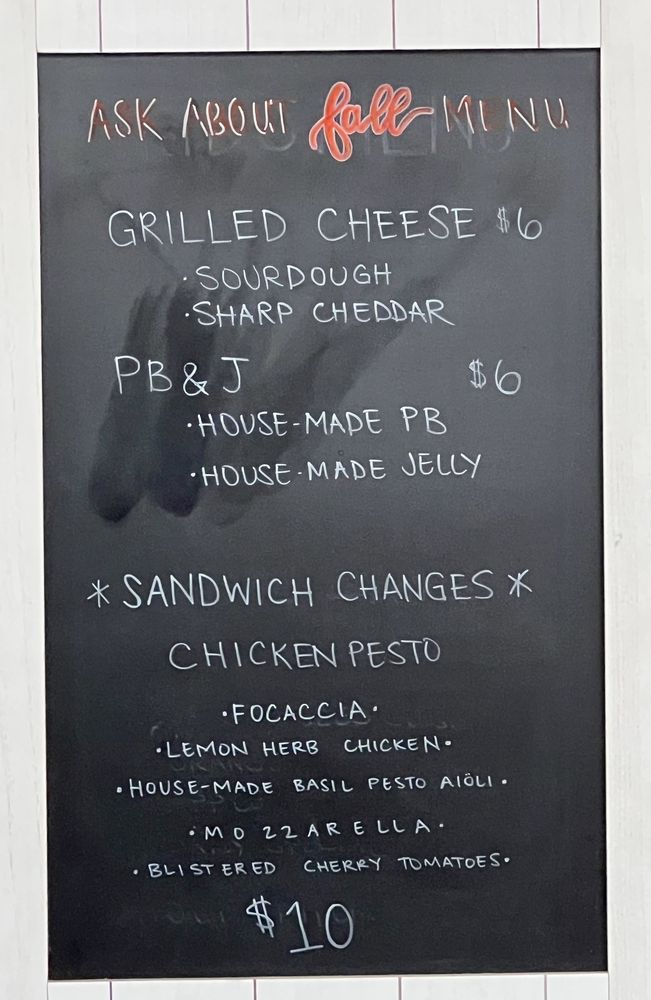 ASK ABOUT fall MENU
GRILLED CHEESE $6
·SOURDOUGH
·SHARP CHEDDAR
PB & J $6
·HOUSE-MADE PB
·HOUSE-MADE JELLY
*SANDWICH CHANGES*
CHICKEN PESTO
·FOCACCIA·
·LEMON HERB CHICKEN·
·HOUSE-MADE BASIL PESTO AIÖLI·
·MOZZARELLA·
·BLISTERED CHERRY TOMATOES·
$10